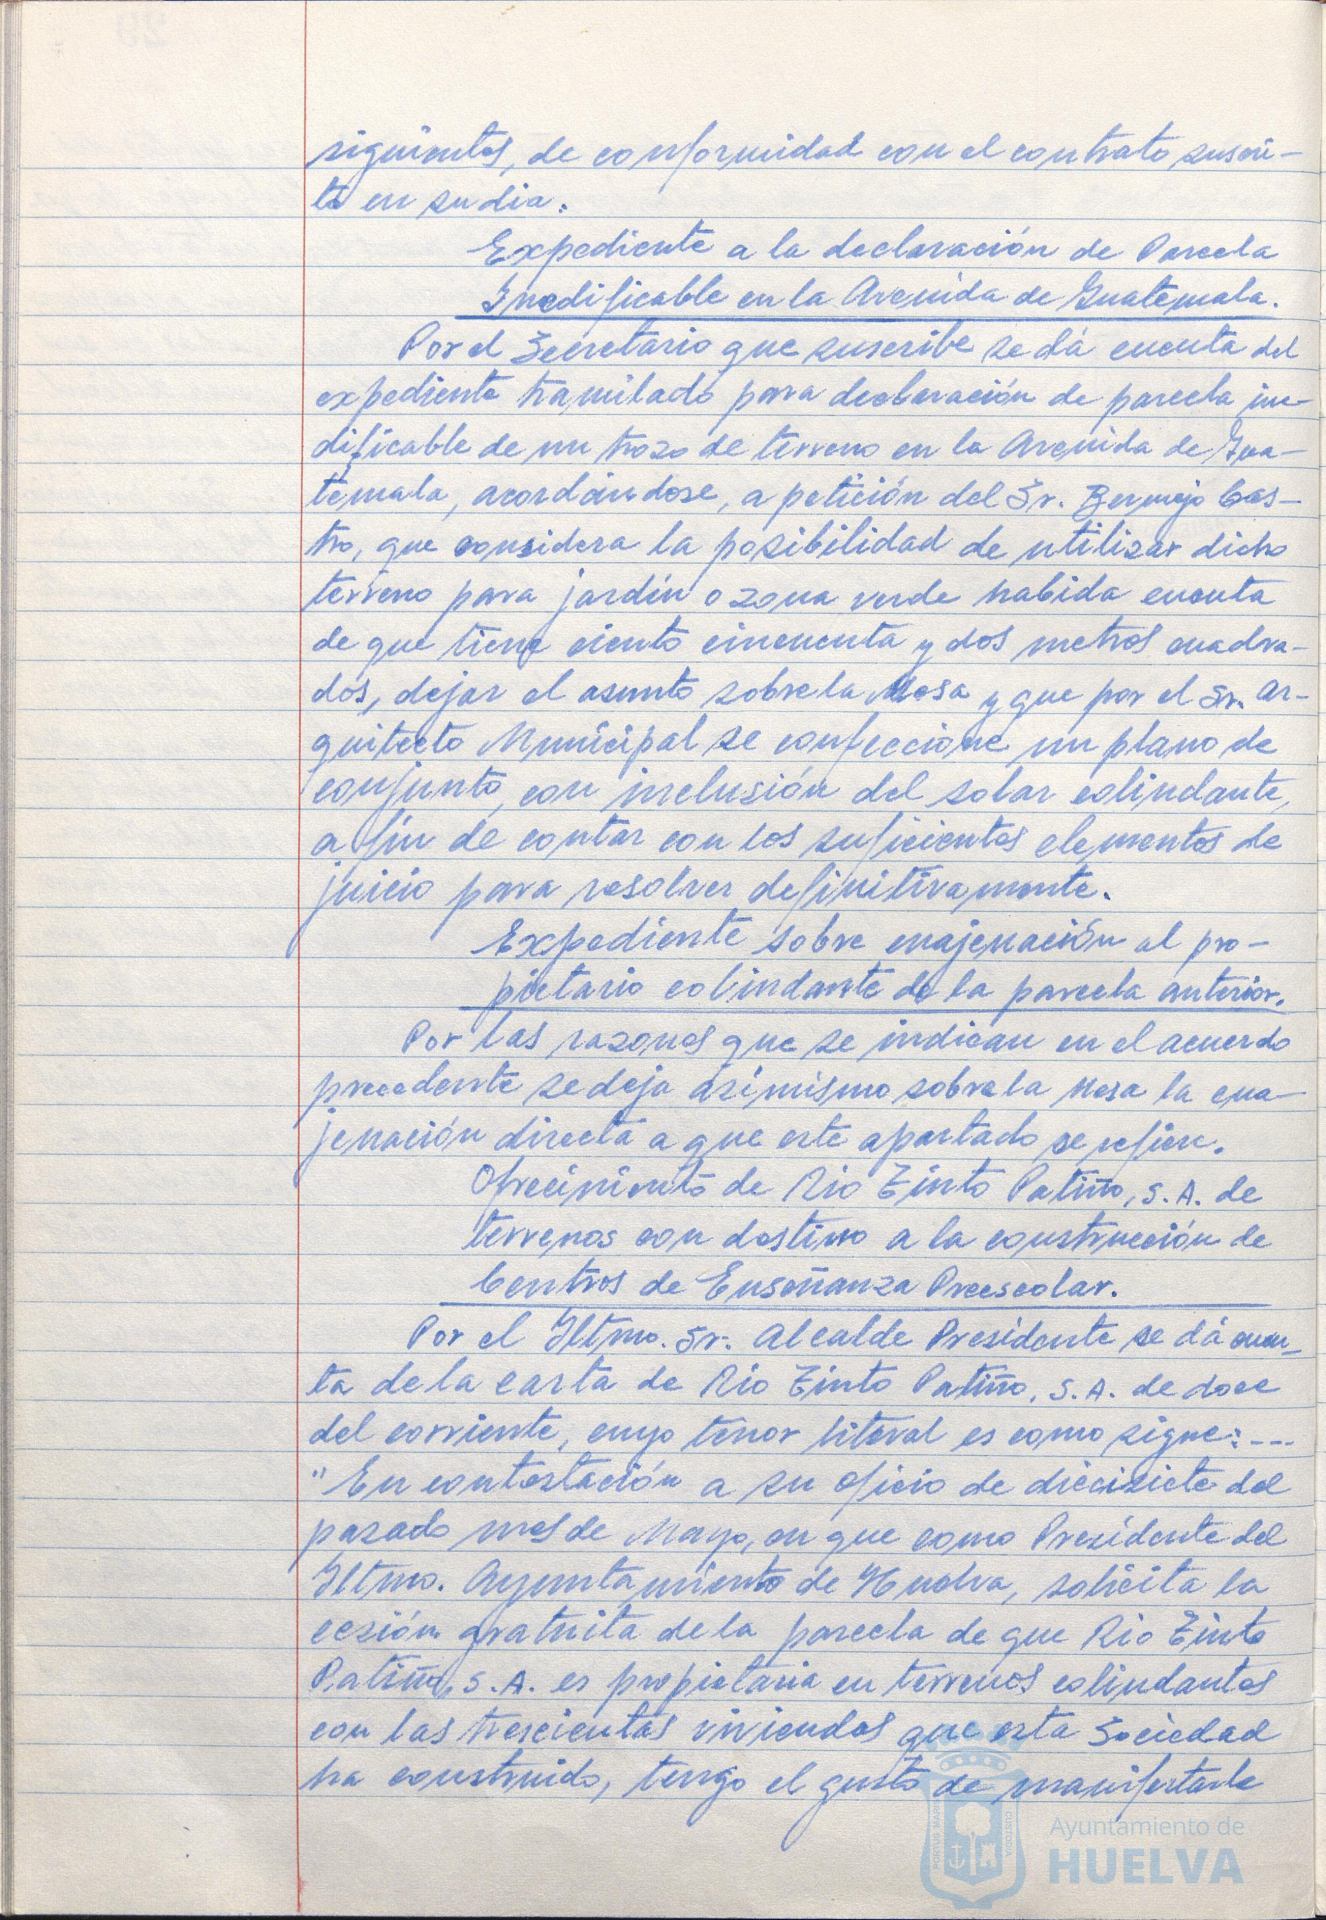 siguientes, de conformidad con el contrato suscri-
to en su dia.
Expediente a la declaración de Parcela
Inedificable en la Avenida de Guatemala.
Por el Secretario que suscribe se dá cuenta del
expediente tramitado para declaración de parcela ine-
dificable de un trozo de terreno en la Avenida de Gua-
temala, acordándose, a petición del Sr. Bermejo Cas-
tro, que considera la posibilidad de utilizar dicho
terreno para jardín o zona verde habida cuenta
de que tiene ciento cincuenta y dos metros cuadra-
dos, dejar el asunto sobre la Mesa y que por el Sr. Ar-
quitecto Municipal se confeccione un plano de
conjunto, con inclusión del solar colindante,
a fin de contar con los suficientes elementos de
juicio para resolver definitivamente.
Expediente sobre enajenación al pro-
pietario colindante de la parcela anterior.
Por las razones que se indican en el acuerdo
precedente se deja asimismo sobre la Mesa la ena-
jenación directa a que este apartado se refiere.
Ofrecimiento de Rio Tinto Patiño, S.A. de
terrenos con destino a la construcción de
Centros de Enseñanza Preescolar.
Por el Iltmo. Sr. Alcalde Presidente se dá cuen-
ta de la carta de Rio Tinto Patiño, S.A. de doce
del corriente, cuyo tenor literal es como sigue: ---
"En contestación a su oficio de diecisiete del
pasado mes de Mayo, en que como Presidente del
Iltmo. Ayuntamiento de Huelva, solicita la
cesión gratuita de la parcela de que Rio Tinto
Patiño, S.A. es propietaria en terrenos colindantes
con las trescientas viviendas que esta Sociedad
ha construido, tengo el gusto de manifestarle
PORTUS MARIS
CUSTODIA
Ayuntamiento de
HUELVA